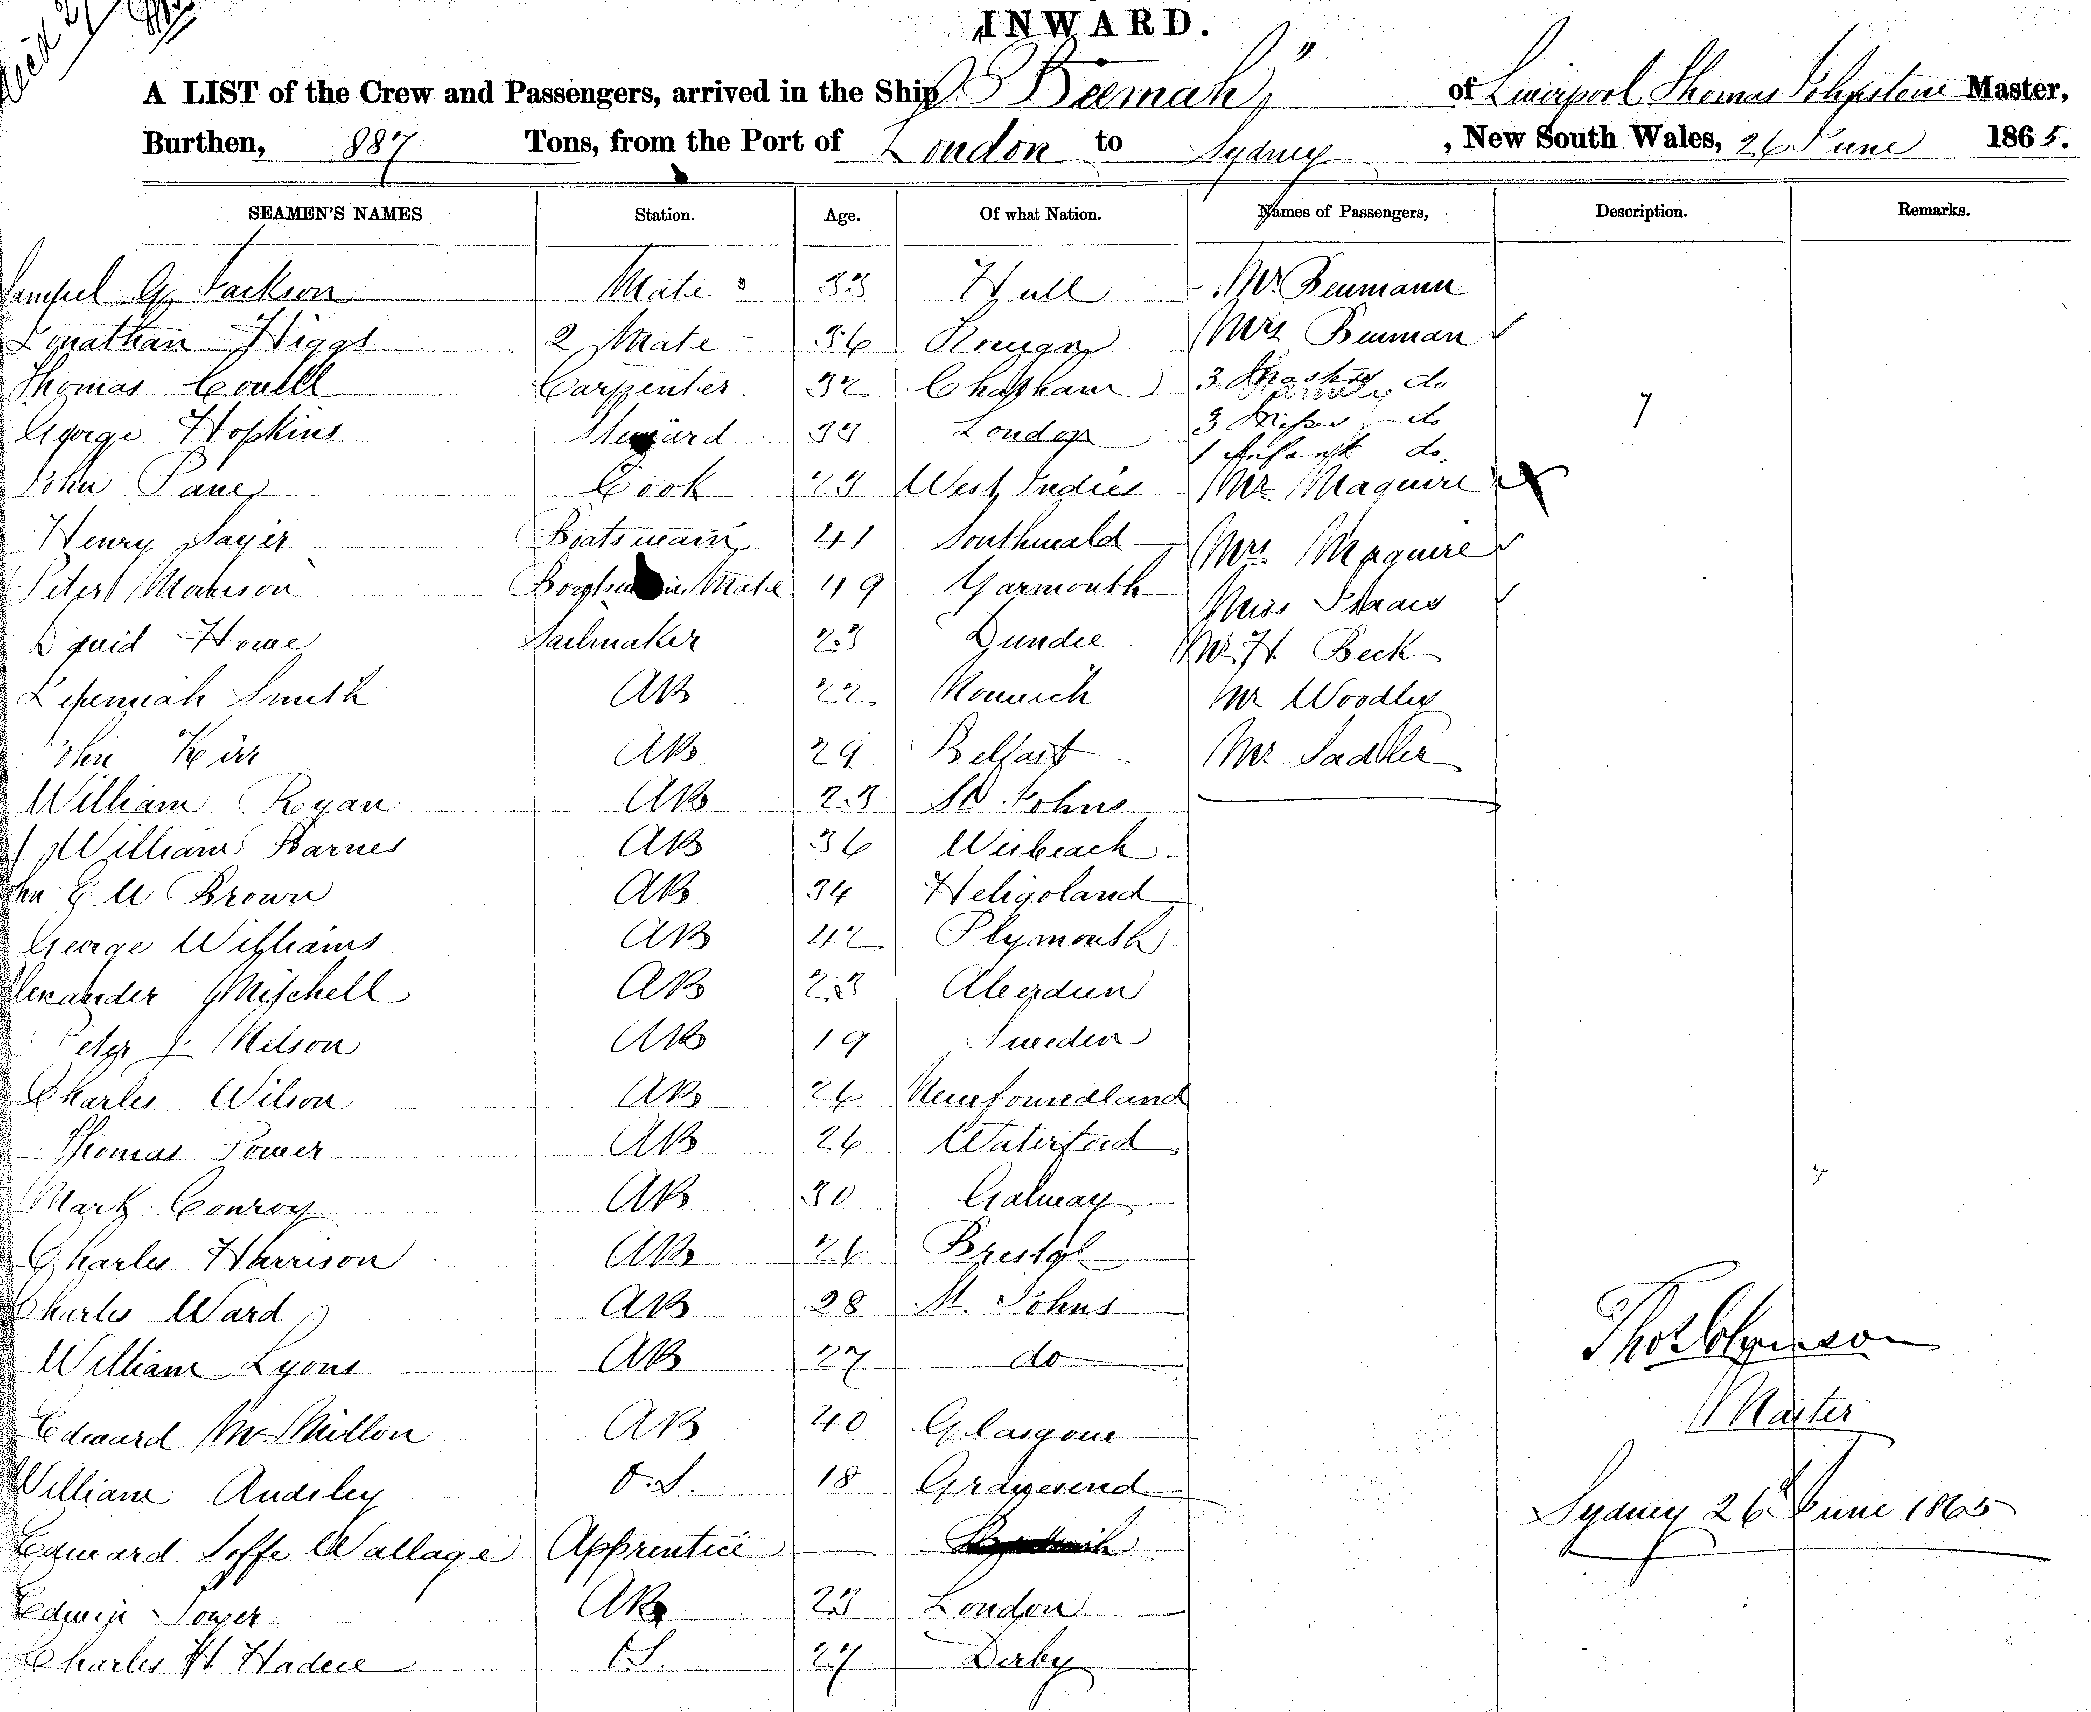 INWARD.
A LIST of the Crew and Passengers, arrived in the Ship "Beemah" of Liverpool, Thomas Johnstone Master,
Burthen, 887 Tons, from the Port of London to Sydney, New South Wales, 26 June 1865.
SEAMEN'S NAMES Station. Age. Of what Nation. Names of Passengers, Description. Remarks.
Samuel G. Jackson Mate 33 Hull Mr Beumann
Jonathan Higgs 2 Mate 36 Mrs Beuman
Thomas Covell Carpenter 32 Chatham 3 do
George Hopkins Steward 33 London 3 Misses do 7
1 Infant do.
John Cook 23 West Indies Mr Maguire
Henry Sayer Boatsmain 41 Southwald Mrs Maguire
Peter Morrison Boatswain Mate 49 Yarmouth Miss Isaacs
David Howe Sailmaker 23 Dundee Mr H. Beck
Jeremiah Smith AB 22 Norwich Mr Woodley
John Kirr AB 29 Belfast Mr Sadler
William Ryan AB 23 St Johns
William Barnes AB 36 Wisbeach
John G W Brown AB 34 Heligoland
George Williams AB 42 Plymouth
Alexander Mitchell AB 23 Aberdeen
Peter J. Nilson AB 19 Sweden
Charles Wilson AB 26 Newfoundland
Thomas Power AB 26 Waterford
Mark Conroy AB 30 Galway
Charles Harrison AB 26 Bristol
Charles Ward AB 28 St. Johns
William Lyons AB 27 do
Thos Johnson
Edward McMillon AB 40 Glasgow Master
William Audsley O.S. 18 Gravesend
Sydney 26th June 1865
Edward Joffe Wallage Apprentice
Edwin Power AB 23 London
Charles H. Hadee O.S. 27 Derby